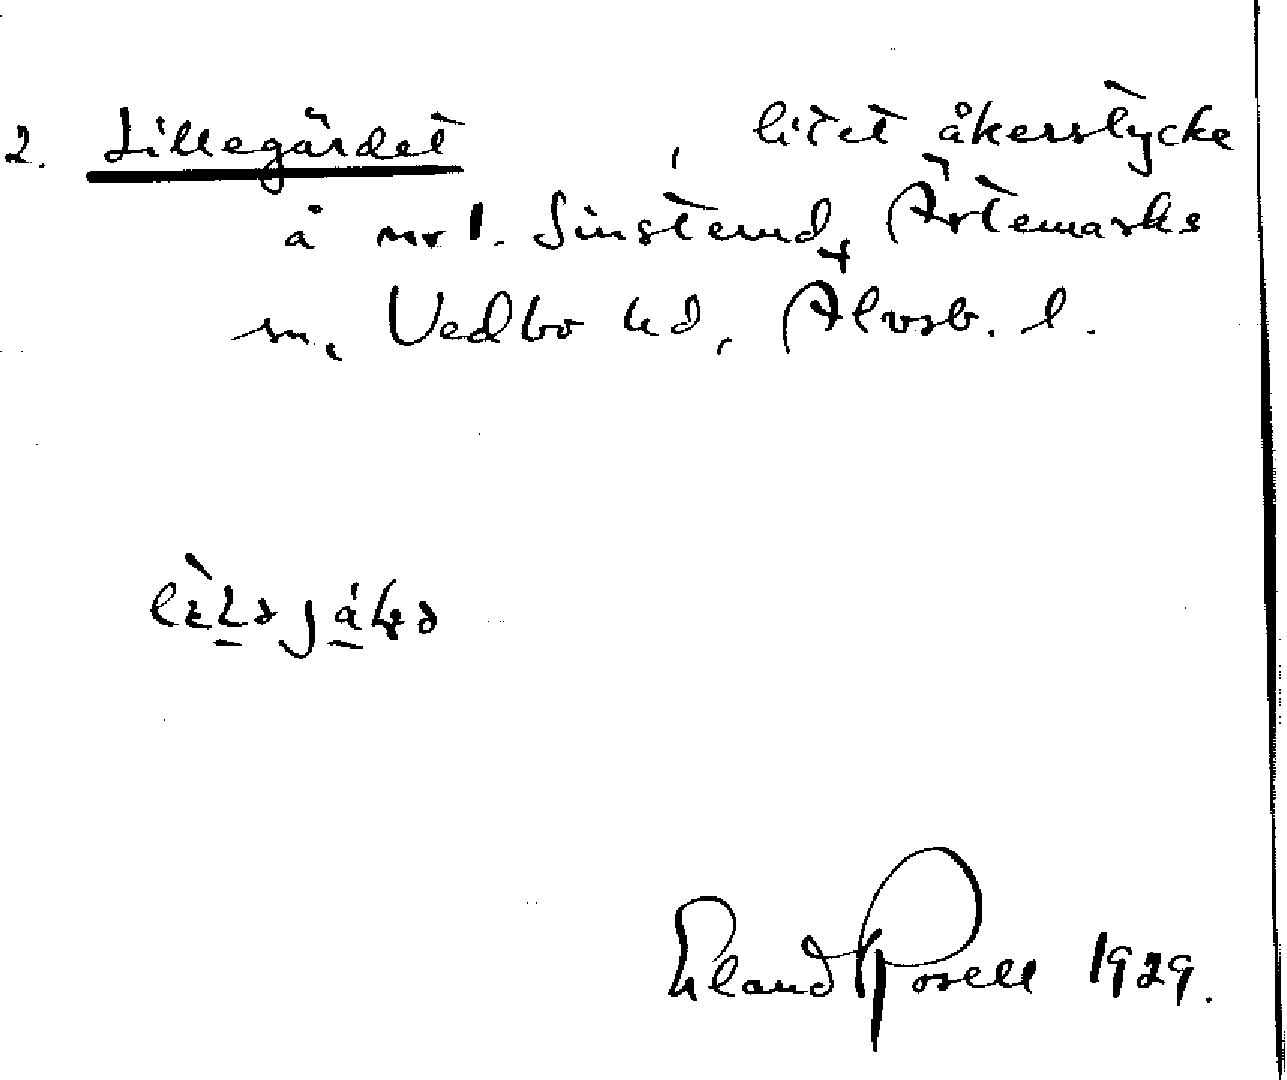 2. Lillegärdet, litet åkerstycke
å nr 1. Sinstemd, Ärtemarks
sn, Vedbo hd, Älvsb. l.
Erland Rosell 1929.